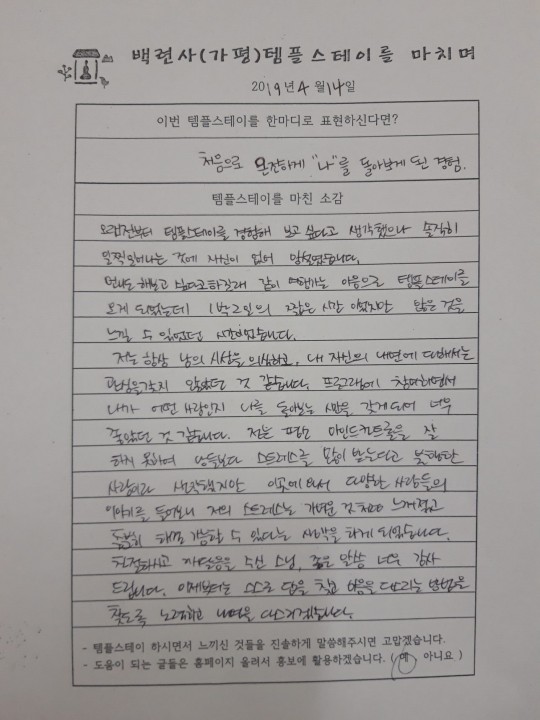 백련사(가평)템플스테이를 마치며
2019년 4월 14일
이번 템플스테이를 한마디로 표현하신다면?
처음으로 온전하게 "나"를 돌아보게 된 경험.
템플스테이를 마친 소감
오래전부터 템플스테이를 경험해 보고 싶다고 생각했으나 솔직히
일찍일어나는 것에 자신이 없어 망설였습니다.
언니도 해보고 싶다고하길래 같이 여행가는 마음으로 템플스테이를
오게 되었는데 1박2일의 짧은 시간 이었지만 많은 것을
느낄 수 있었던 시간이었습니다.
저는 항상 남의 시선을 의식하고, 내 자신의 내면에 대해서는
관심을갖지 않았던 것 같습니다. 프로그램에 참여하면서
내가 어떤 사람인지 나를 돌아보는 시간을 갖게되어 너무
좋았던 것 같습니다. 저는 평소 마인드컨트롤을 잘
하지 못하여 남들보다 스트레스를 많이 받는다고 불행한
사람이라 생각했지만 이곳에 와서 다양한 사람들의
이야기를 들어보니 저의 스트레스는 가벼운 것처럼 느껴졌고
충분히 해소 가능할 수 있다는 생각을 하게 되었습니다.
친절하시고 깨달음을 주신 스님, 좋은 말씀 너무 감사
드립니다. 이제부터는 스스로 답을 찾고 마음을 다스리는 방법을
찾도록 노력하고 내면을 다스리겠습니다.
- 템플스테이 하시면서 느끼신 것들을 진솔하게 말씀해주시면 고맙겠습니다.
- 도움이 되는 글들은 홈페이지 올려서 홍보에 활용하겠습니다. ( 예 아니요 )